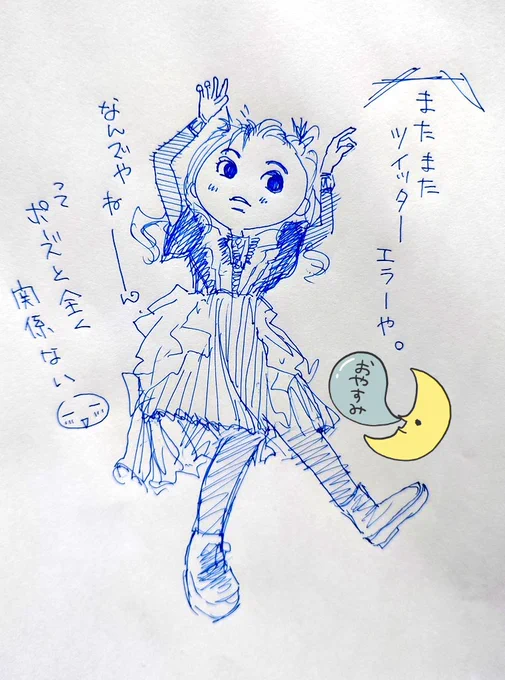 またまた
ツイッター
エラーや。
なんでやねーん
って
ポーズと全く
関係ない
おやすみ